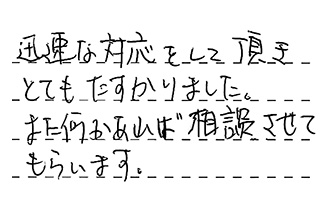 迅速な対応をして頂き
とてもたすかりました。
また何かあれば相談させて
もらいます。